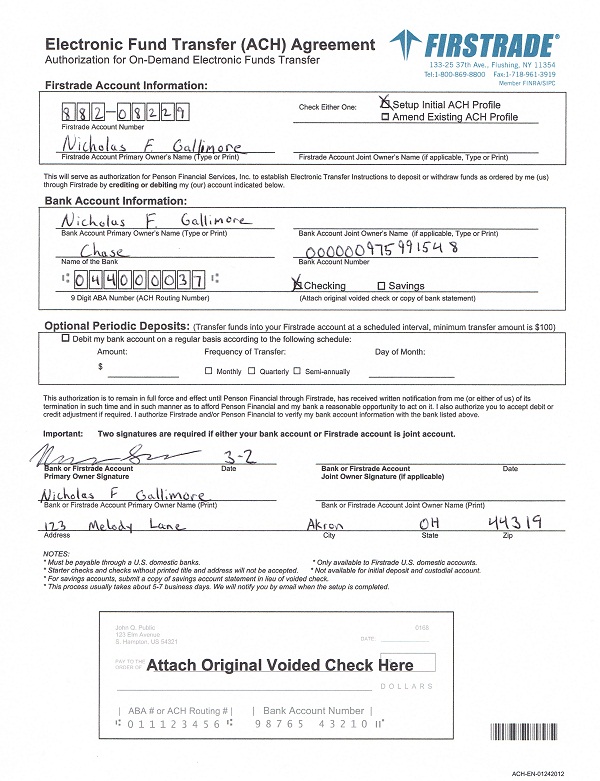 Electronic Fund Transfer (ACH) Agreement
Authorization for On-Demand Electronic Funds Transfer
FIRSTRADE®
133-25 37th Ave., Flushing, NY 11354
Tel:1-800-869-8800 Fax:1-718-961-3919
Member FINRA/SIPC
Firstrade Account Information:
882-08229
Firstrade Account Number
Check Either One:
Setup Initial ACH Profile
Amend Existing ACH Profile
Nicholas F. Gallimore
Firstrade Account Primary Owner's Name (Type or Print)
Firstrade Account Joint Owner's Name (if applicable, Type or Print)
This will serve as authorization for Penson Financial Services, Inc. to establish Electronic Transfer Instructions to deposit or withdraw funds as ordered by me (us)
through Firstrade by crediting or debiting my (our) account indicated below.
Bank Account Information:
Nicholas F. Gallimore
Bank Account Primary Owner's Name (Type or Print)
Bank Account Joint Owner's Name (if applicable, Type or Print)
Chase
Name of the Bank
000000975991548
Bank Account Number
044000037
9 Digit ABA Number (ACH Routing Number)
Checking
Savings
(Attach original voided check or copy of bank statement)
Optional Periodic Deposits: (Transfer funds into your Firstrade account at a scheduled interval, minimum transfer amount is $100)
Debit my bank account on a regular basis according to the following schedule:
Amount: Frequency of Transfer: Day of Month:
$ Monthly Quarterly Semi-annually
This authorization is to remain in full force and effect until Penson Financial through Firstrade, has received written notification from me (or either of us) of its
termination in such time and in such manner as to afford Penson Financial and my bank a reasonable opportunity to act on it. I also authorize you to accept debit or
credit adjustment if required. I authorize Firstrade and/or Penson Financial to verify my bank account information with the bank listed above.
Important: Two signatures are required if either your bank account or Firstrade account is joint account.
3-2
Bank or Firstrade Account Date
Primary Owner Signature
Bank or Firstrade Account Date
Joint Owner Signature (if applicable)
Nicholas F Gallimore
Bank or Firstrade Account Primary Owner Name (Print)
Bank or Firstrade Account Joint Owner Name (Print)
123 Melody Lane Akron OH 44319
Address City State Zip
NOTES:
* Must be payable through a U.S. domestic banks.
* Only available to Firstrade U.S. domestic accounts.
* Starter checks and checks without printed title and address will not be accepted.
* Not available for initial deposit and custodial account.
* For savings accounts, submit a copy of savings account statement in lieu of voided check.
* This process usually takes about 5-7 business days. We will notify you by email when the setup is completed.
John Q. Public
123 Elm Avenue
S. Hampton, US 54321
0168
DATE:
PAY TO THE
ORDER OF
Attach Original Voided Check Here
DOLLARS
| ABA # or ACH Routing # | | Bank Account Number |
⑆011123456⑆ 98765 43210⑈
ACH-EN-01242012